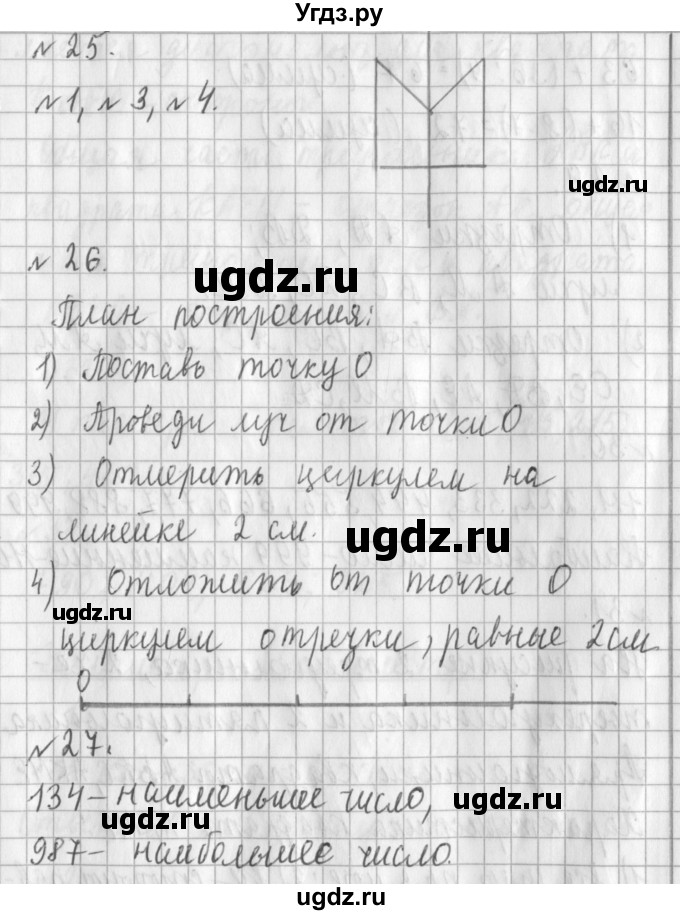 Угдз.ру
№ 25.
№1, №3, №4.
№ 26.
ugdz.ru
План построения:
1) Поставь точку О
2) Проведи луч от точки О
3) Отмерить циркулем на
линейке 2 см.
ugdz.ru
4) Отложить от точки О
ugdz.ru
циркулем отрезки, равные 2см
О
№ 27.
134 – наименьшее число,
ugdz.ru
987 – наибольшее число.
ugdz.ru